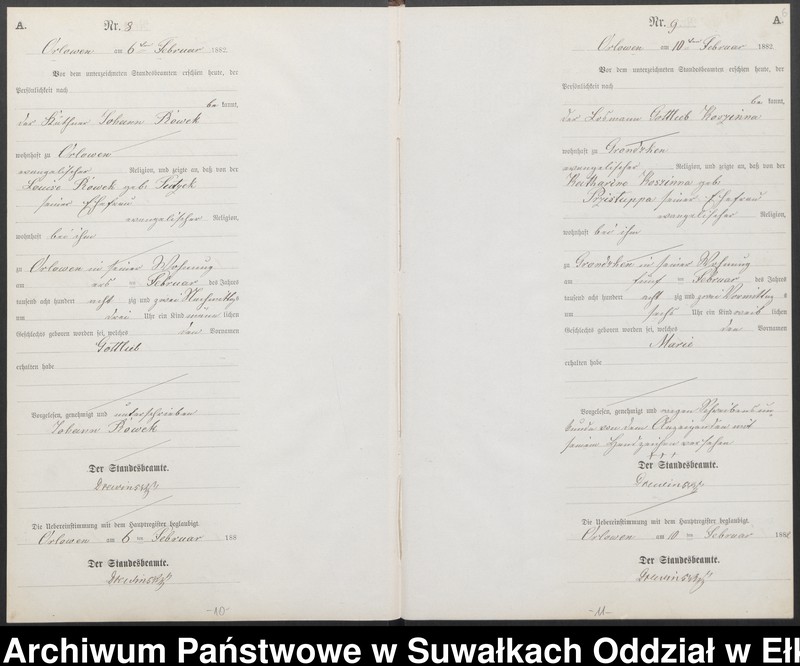 A.
Nr. 8
Orlowen am 6ten Februar 1882.
Vor dem unterzeichneten Standesbeamten erschien heute, der
Persönlichkeit nach
be kannt,
der Käthner Johann Kowek
wohnhaft zu Orlowen
evangelischer Religion, und zeigte an, daß von der
Louise Kowek geb.
seiner Ehefrau
evangelischer Religion,
wohnhaft bei ihm
zu Orlowen in seiner Wohnung
am ten Februar des Jahres
tausend acht hundert acht zig und zwei Nachmittags
um drei Uhr ein Kind männ lichen
Geschlechts geboren worden sei, welches den Vornamen
Gottlieb
erhalten habe
Vorgelesen, genehmigt und unterschrieben
Johann Kowek
Der Standesbeamte.
Drewinski
Die Uebereinstimmung mit dem Hauptregister beglaubigt.
Orlowen am 6 ten Februar 188
Der Standesbeamte.
Drewinski
-10-
Nr. 9
A.
Orlowen am 10ten Februar 1882
Vor dem unterzeichneten Standesbeamten erschien heute, der
Persönlichkeit nach
be kannt,
der Losmann Gottlieb Kossinna
wohnhaft zu Grondzken
evangelischer Religion, und zeigte an, daß von der
Katharine Kossinna geb.
Pristuppa seiner Ehefrau
evangelischer Religion,
wohnhaft bei ihm
zu Grondzken in seiner Wohnung
am fünf ten Februar des Jahres
tausend acht hundert acht zig und zwei Vormittag s
um sechs Uhr ein Kind weib lichen
Geschlechts geboren worden sei, welches den Vornamen
Marie
erhalten habe
Vorgelesen, genehmigt und wegen Schreibensun
kunde von dem Anzeigenden mit
seinem Handzeichen versehen
+ + +
Der Standesbeamte.
Drewinski
Die Uebereinstimmung mit dem Hauptregister beglaubigt.
Orlowen am 10 ten Februar 1882
Der Standesbeamte.
Drewinski
-11-
Archiwum Państwowe w Suwałkach Oddział w Ełk